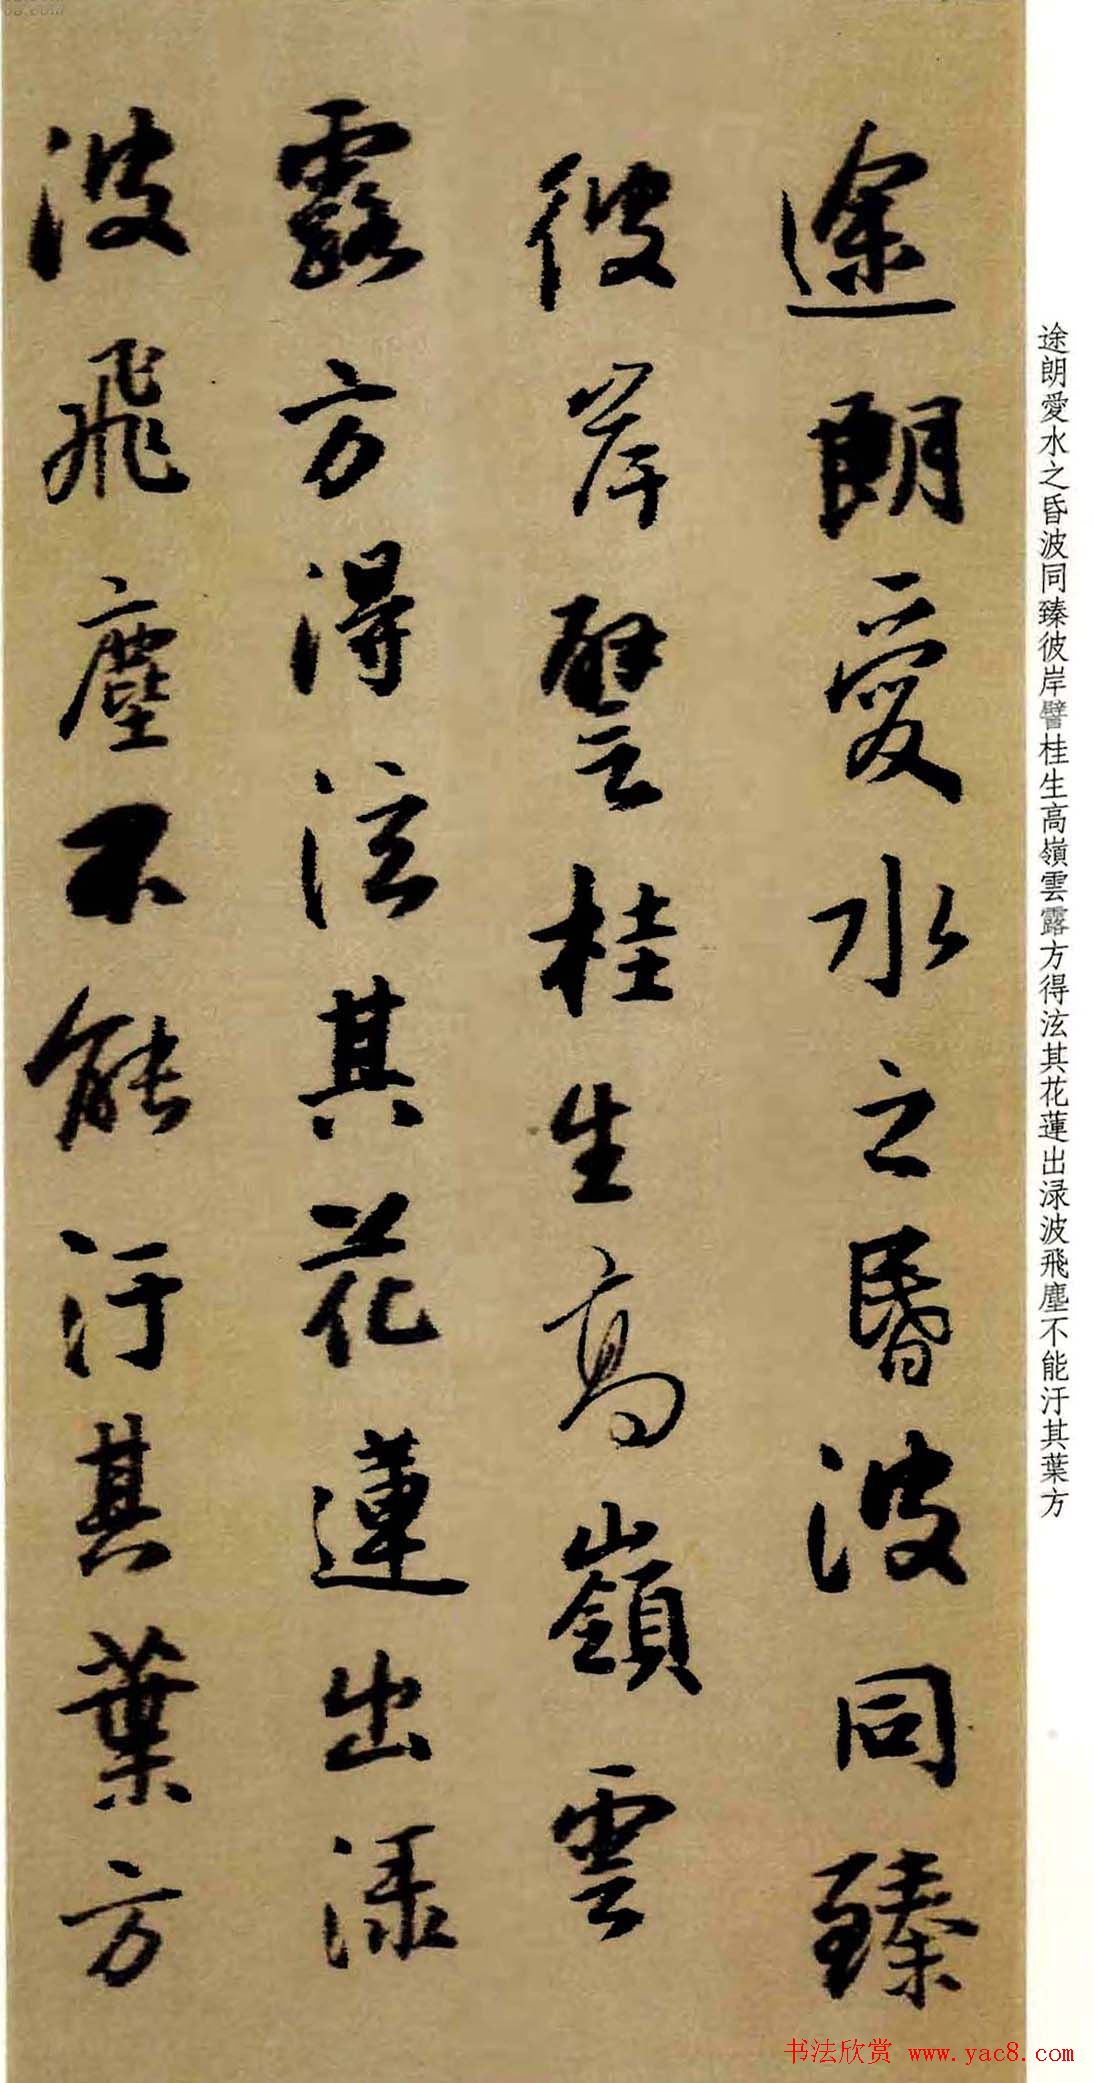 途朗愛水之昏波同臻
彼岸譬桂生高嶺雲
露方得泫其花蓮出渌
波飛塵不能汙其葉方
途朗愛水之昏波同臻彼岸譬桂生高嶺雲露方得泫其花蓮出渌波飛塵不能汙其葉方
书法欣赏 www.yac8.com